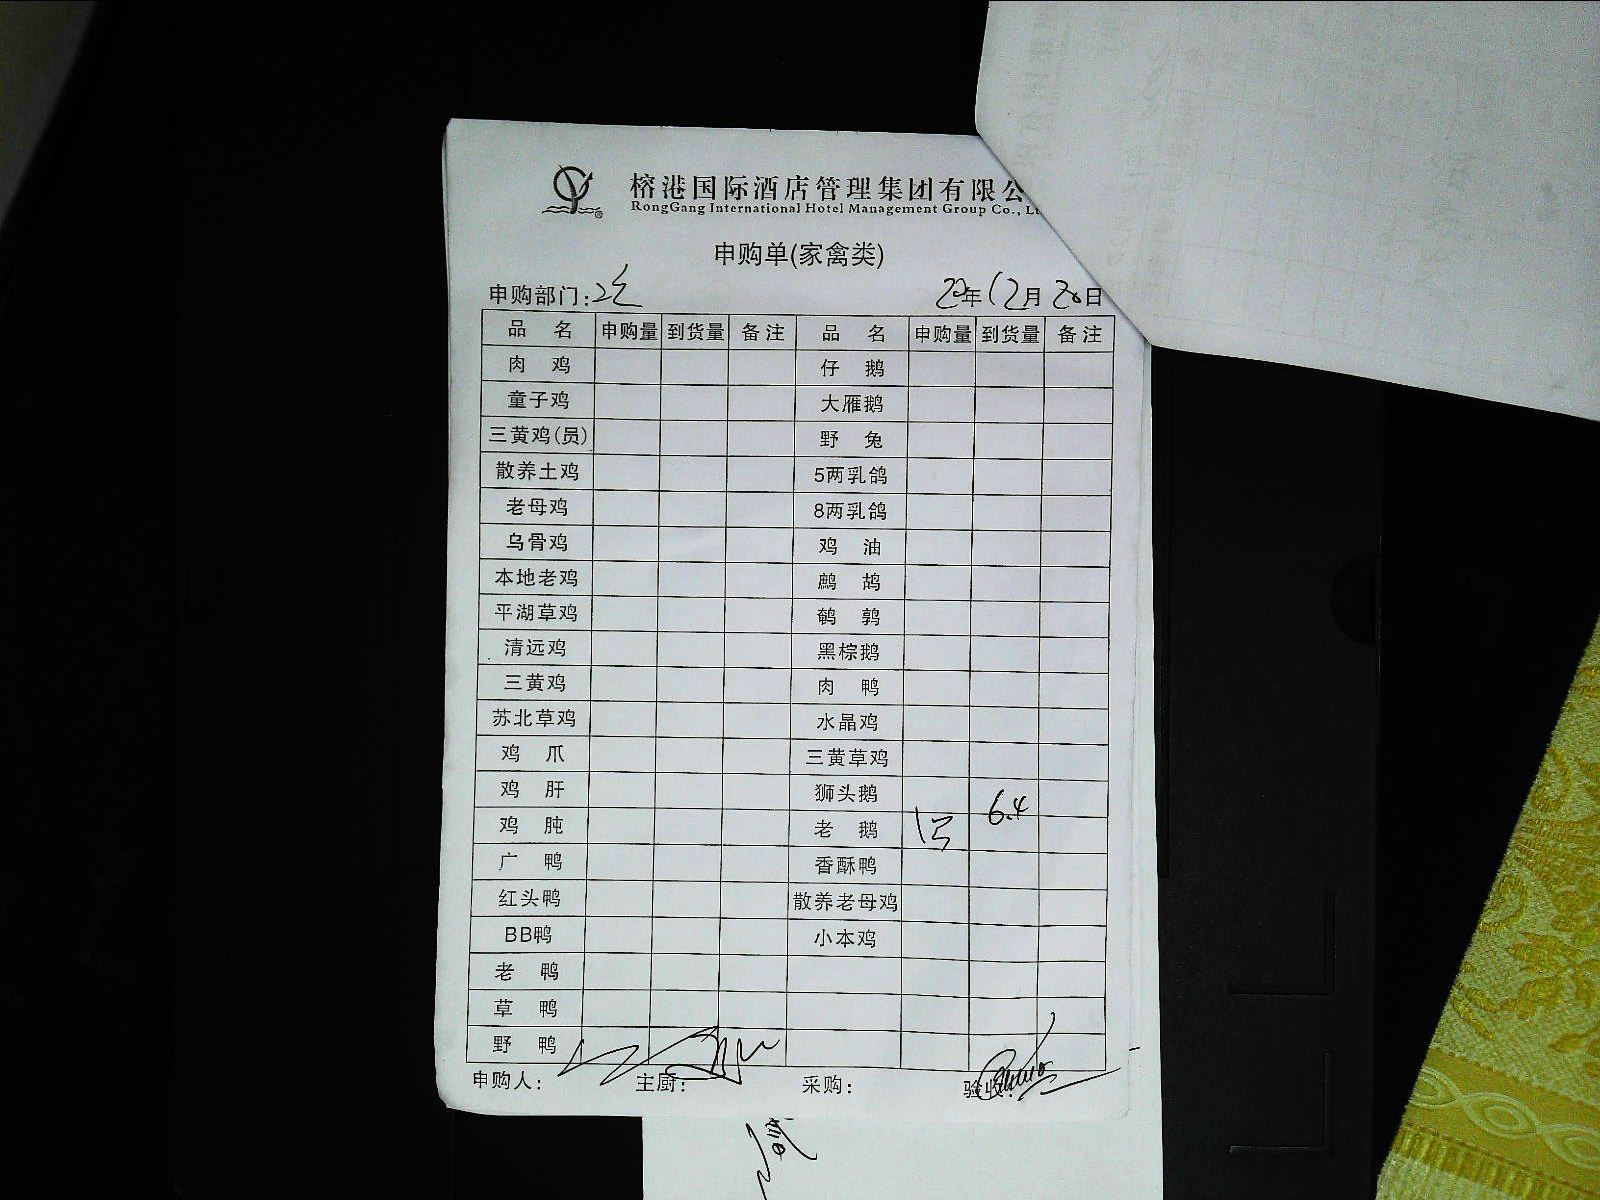 榕港国际酒店管理集团有限公
RongGang International Hotel Management Group Co., Lt
申购单(家禽类)
申购部门: 年12月20日
品名 申购量 到货量 备注 品名 申购量 到货量 备注
肉鸡 仔鹅
童子鸡 大雁鹅
三黄鸡(员) 野兔
散养土鸡 5两乳鸽
老母鸡 8两乳鸽
乌骨鸡 鸡油
本地老鸡 鹧鸪
平湖草鸡 鹌鹑
清远鸡 黑棕鹅
三黄鸡 肉鸭
苏北草鸡 水晶鸡
鸡爪 三黄草鸡
鸡肝 狮头鹅 6.4
鸡肫 老鹅
广鸭 香酥鸭
红头鸭 散养老母鸡
BB鸭 小本鸡
老鸭
草鸭
野鸭
申购人: 主厨: 采购: 验收: